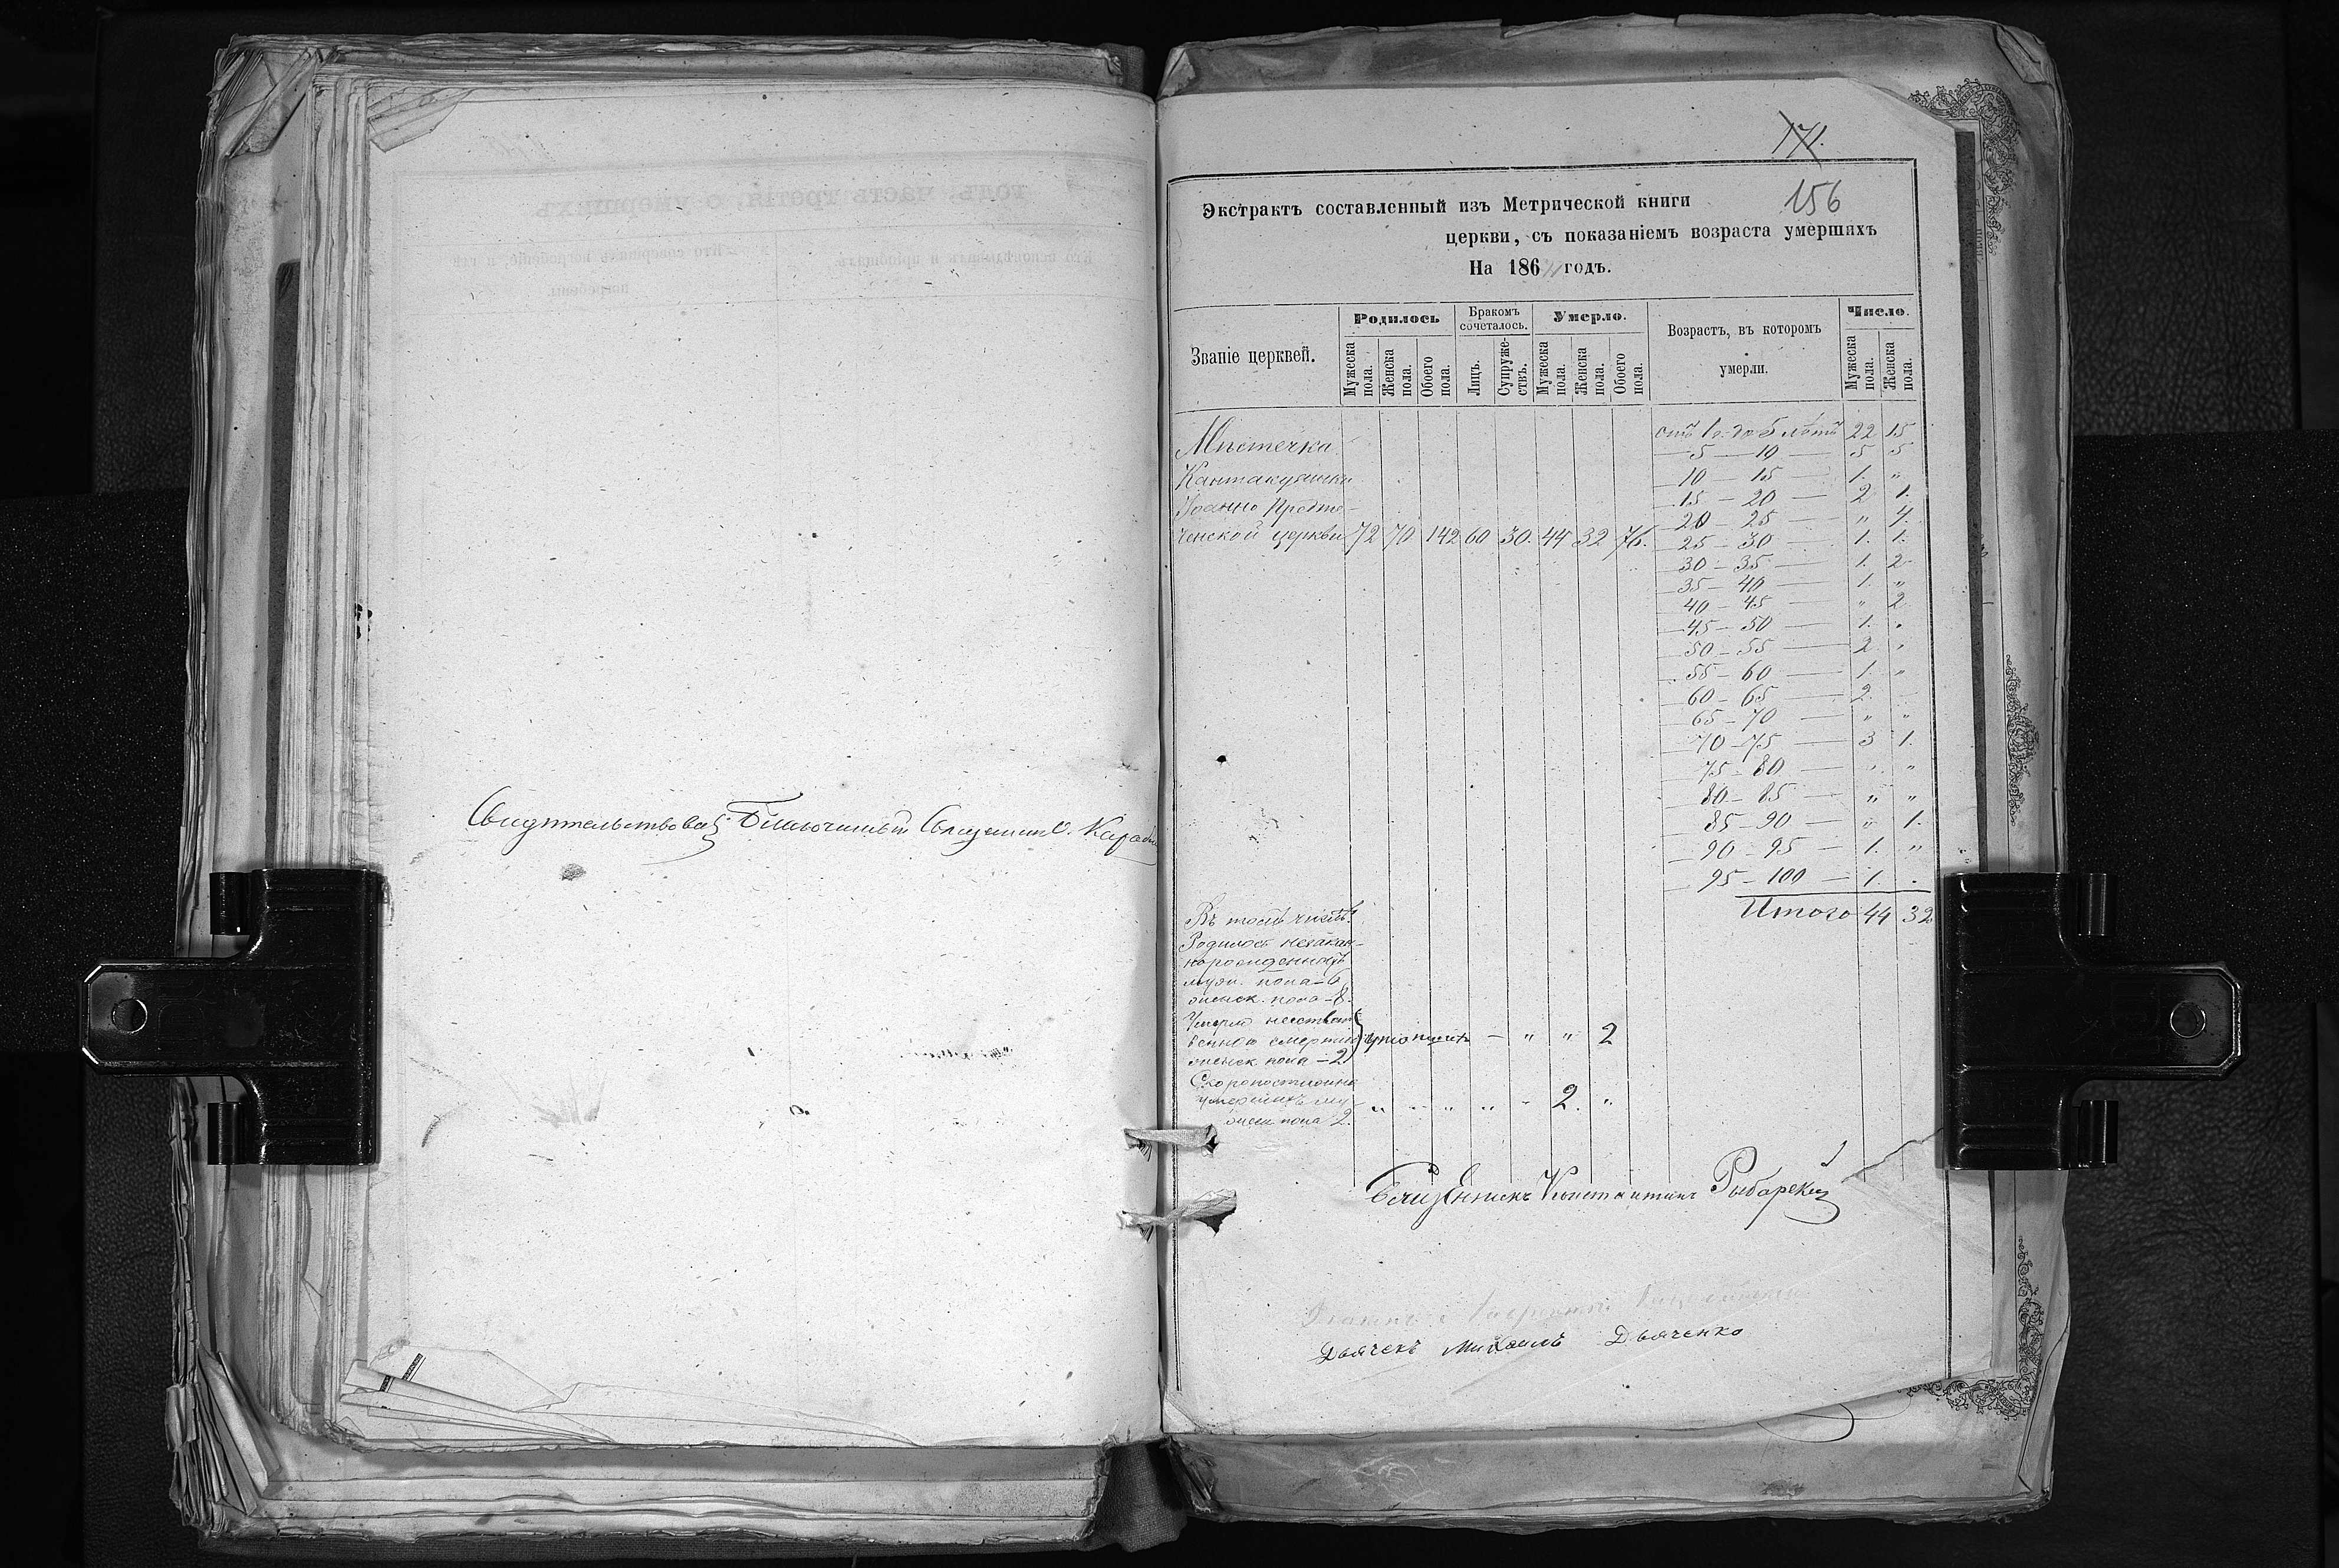 Свидѣтельствовалъ Благочинный Священникъ
171.
156
Экстрактъ составленный изъ Метрической книги
церкви, съ показаніемъ возраста умершихъ
На 186 годъ.
Званіе церквей.
Родилось
Бракомъ сочеталось.
Умерло.
Возрастъ, въ которомъ умерли.
Число.
Мужеска пола.
Женска пола.
Обоего пола.
Лицъ.
Супружествъ.
Мужеска пола.
Женска пола.
Обоего пола.
Мужеска пола.
Женска пола.
Мѣстечка
Кантакузинки
Іоанно Предте-
ченской церкви 72 70 142 60 30. 44 32 76.
отъ 1 г. до 5 лѣтъ 22 15
— 5 — 10 — 5 5
— 10 — 15 — 1. „
— 15 — 20 — 2 1.
— 20 — 25 — „ 4.
— 25 — 30 — 1. 1.
— 30 — 35 — 1. 2
— 35 — 40 — 1. „
— 40 — 45 — „ 2
— 45 — 50 — 1. „
— 50 — 55 — 2 „
— 55 — 60 — 1. „
— 60 — 65 — 2
— 65 — 70 — „ „
— 70 — 75 — 3 1.
— 75 — 80 — „ „
— 80 — 85 — „ „
— 85 — 90 — „ 1.
— 90 — 95 — 1. „
— 95 — 100 — 1. .
Итого 44 32
Въ томъ числѣ:
Родилось незакон-
норожденныхъ
муж. пола — 6
женск. пола — 8.
Умерло неестест-
венною смертію
женск пола — 2 — „ „ 2
Скоропостижно
умершихъ му-
жеск пола 2. „ „ „ „ „ 2. „
Священникъ Константинъ Рыбарскій
Дьячекъ Михаилъ Дьяченко